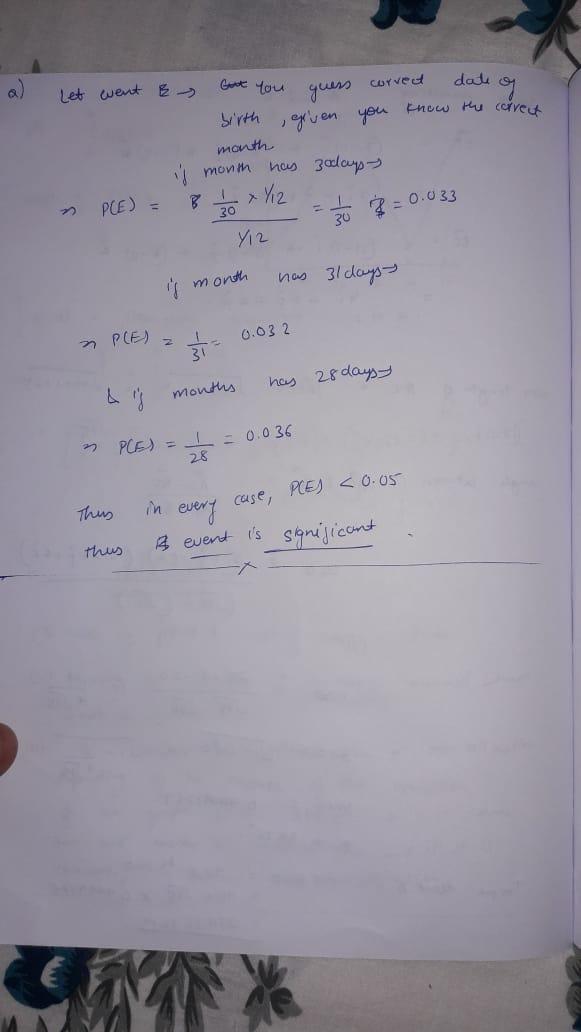 a) Let event E → you guess correct date of
birth, given you know the correct
month
if month has 30days→
⇒ P(E) = 1/30 × 1/12 / 1/12 = 1/30 = 0.033
if month has 31days→
⇒ P(E) = 1/31 = 0.032
& if months has 28days→
⇒ P(E) = 1/28 = 0.036
Thus in every case, P(E) < 0.05
thus event is significant.